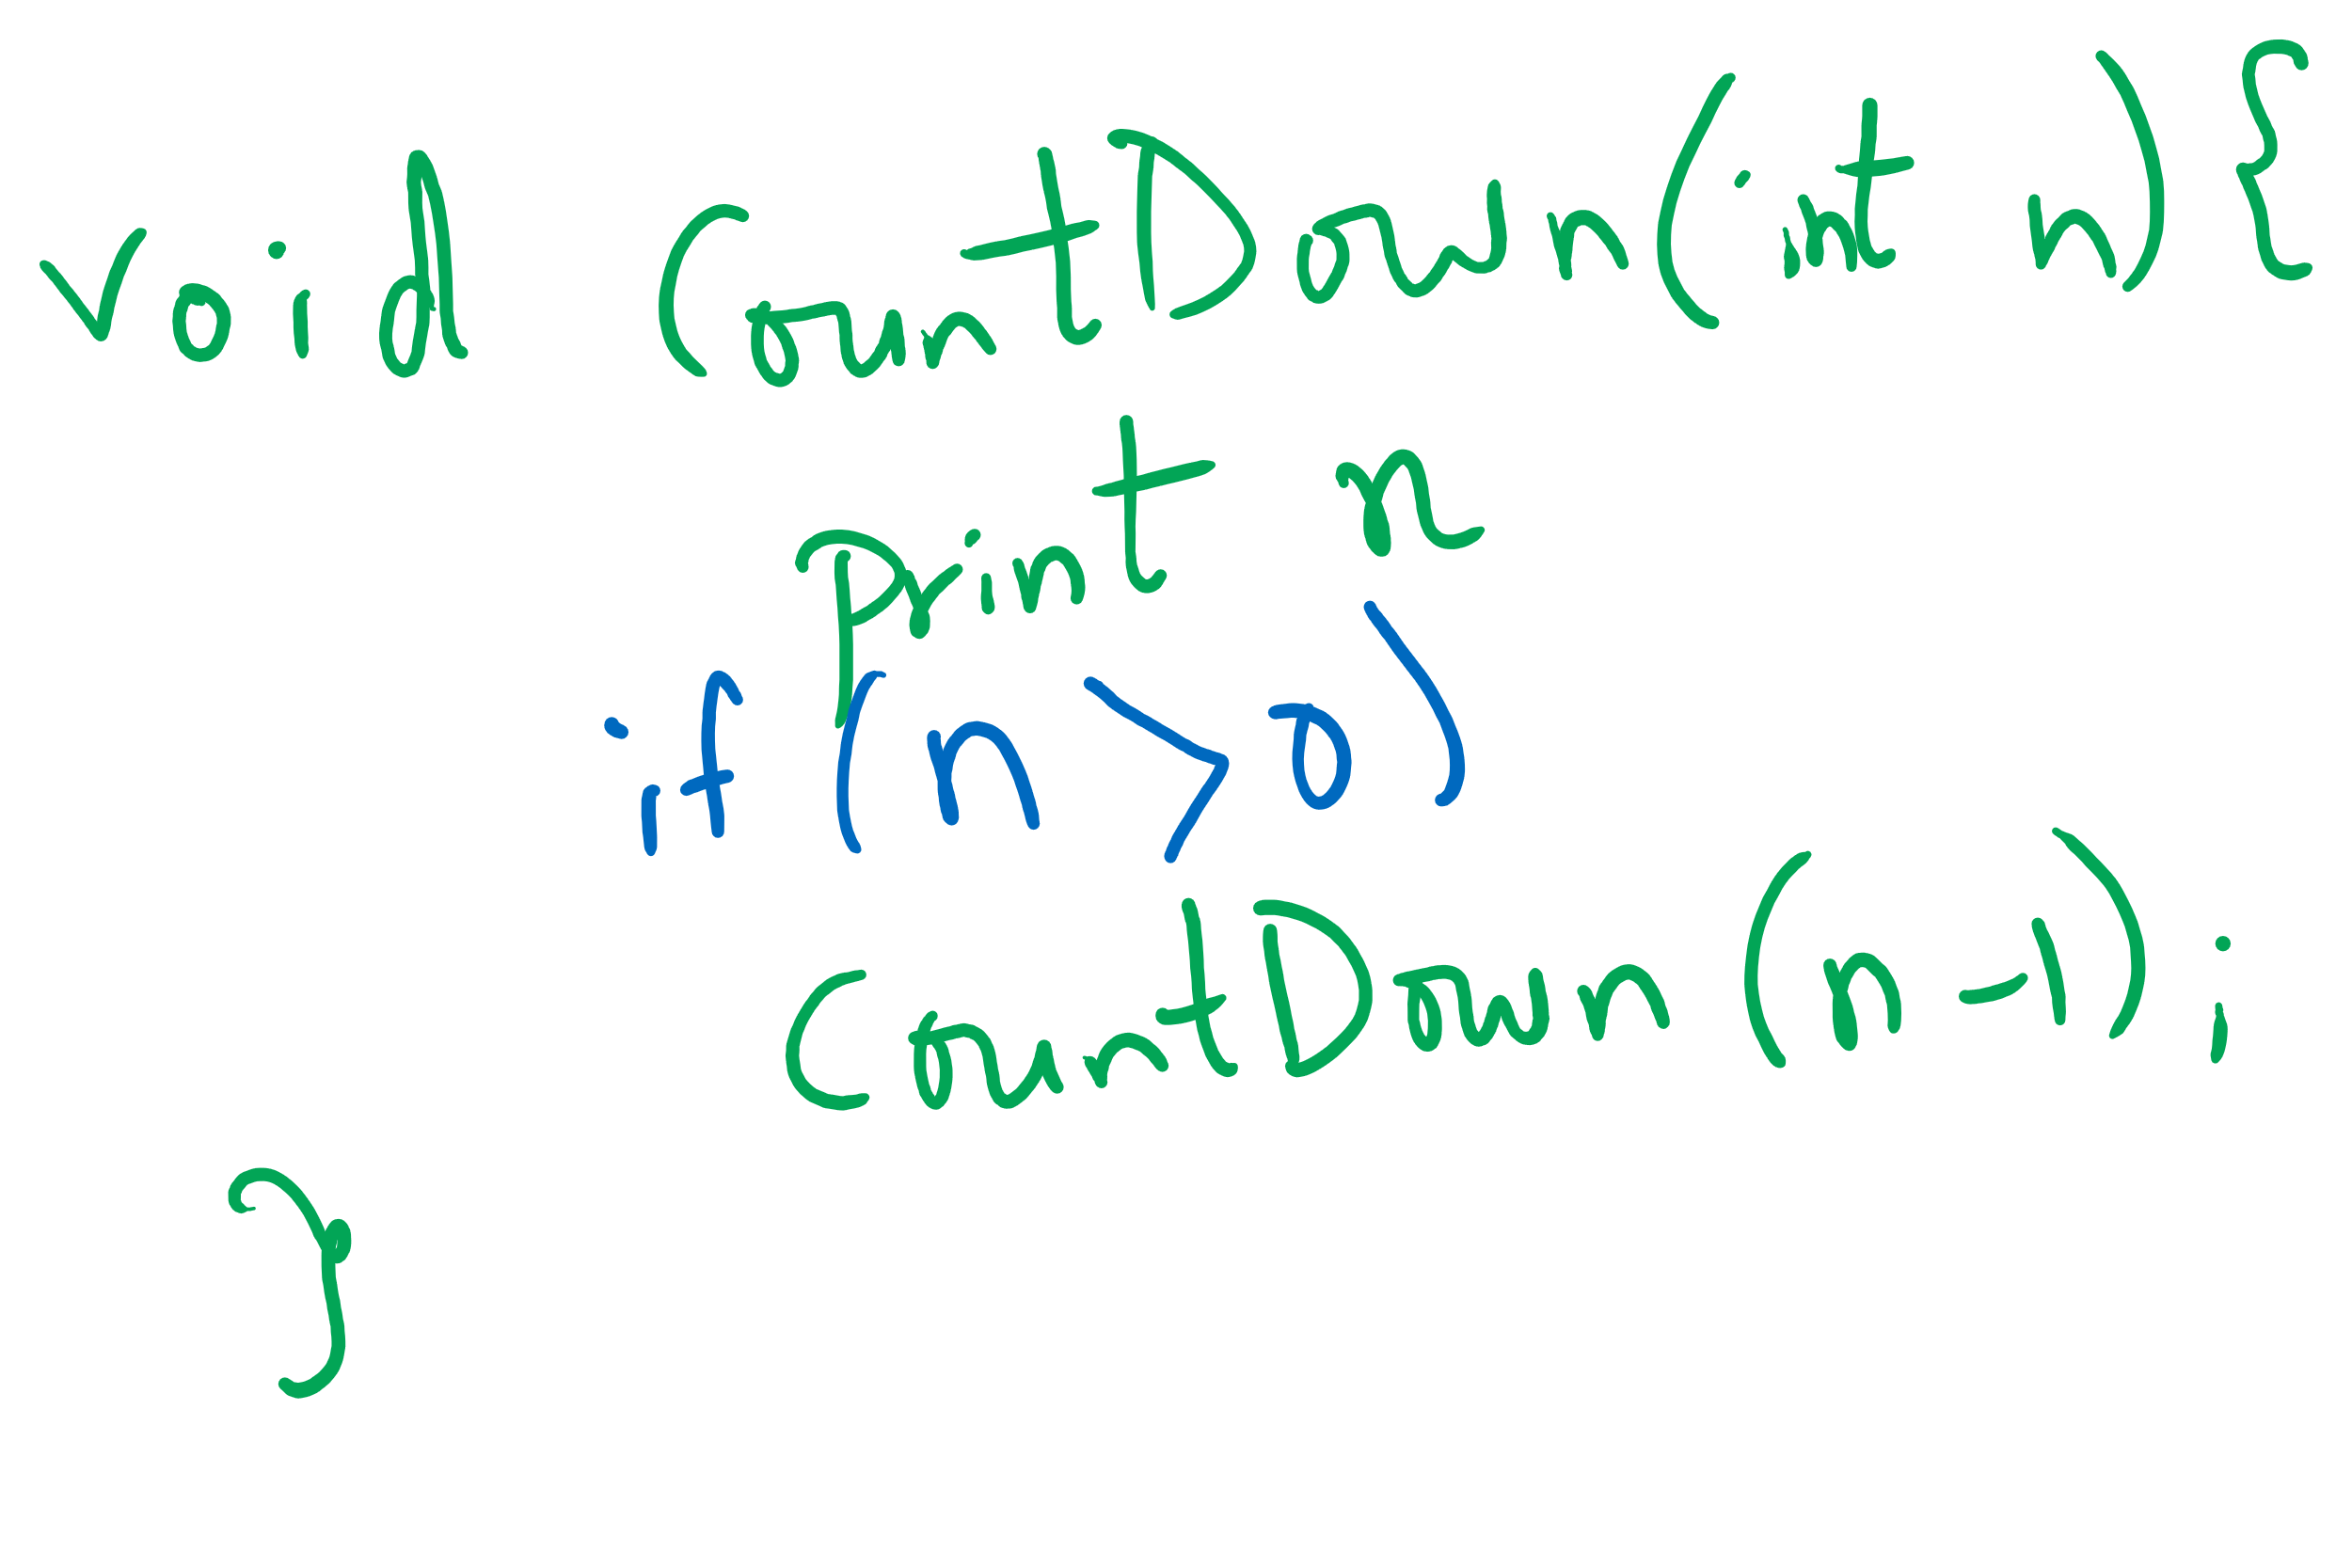 void countDown(int n){
print n
if(n>0)
countDown(n-1);
}